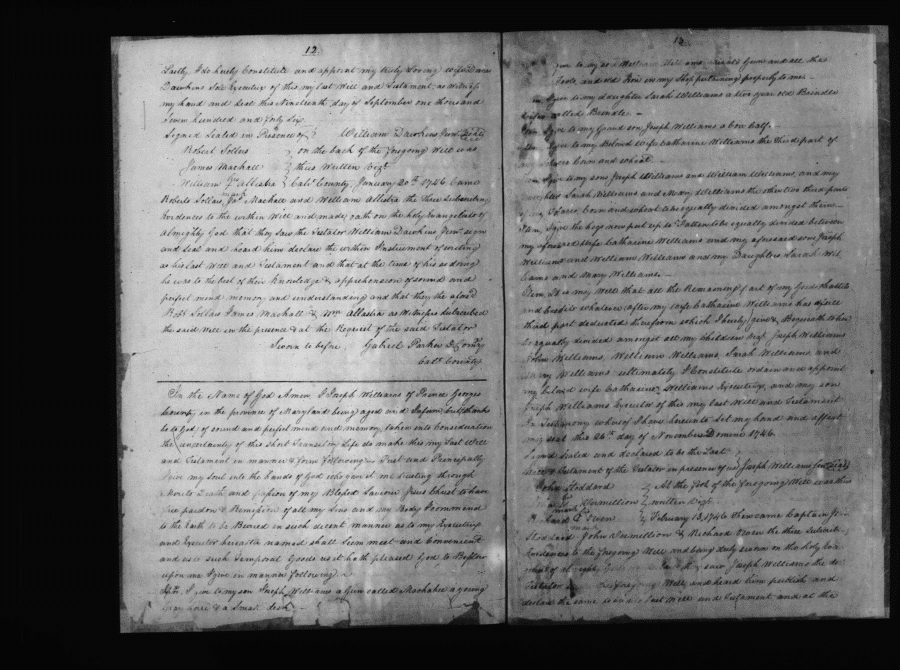 12
Lastly I do hereby Constitute and appoint my truly Loving wife
Dawkins Sole Executrix of this my last Will and Testament, as Witness
my hand and Seal this Nineteenth day of September one thousand
seven hundred and forty Six
Signed Sealed in Presence of William Dawkins Junr Seale
Robert Sollars on the back of the foregoing Will was
James Machall thus Written Vizt
William allistra Calt County January 20th 1746 Came
Roberts Sollars, Jas Machall and William allistra the three Subscribing
Evidences to the within Will and made oath on the holy Evangelists of
almighty God that they saw the Testator William Dawkins Junr sign
and Seal and heard him declare the within Instrument of writing
as his last Will and Testament and that at the time of his so doing
he was to the best of their knowledge & apprehension of sound and
perfect mind memory and understanding and that they the aforsd
Robt Sollars James Machall & Wm allistra as Witnesses subscribed
the said Will in the presence & at the Request of the said Testator
Sworn to before Gabriel Parker D Comry
Calt County
In the Name of God Amen I Joseph Williams of Prince Georges
County in the province of Maryland being aged and Infirm but thanks
be to God of sound and perfect mind and memory, taken into Consideration
the uncertainty of this short Transitory Life do make this my Last Will
and Testament in manner & form following First and Principally
I give my Soul into the hands of God who gave it me trusting through
Merits Death and passion of my Blessed Saviour Jesus Christ to have
free pardon & Remission of all my Sins and my Body I commend
to the Earth to be Buried in such decent manner as to my Executrix
and Executor hereafter named shall Seem meet and Convenient
and as to such Temporal Goods as it hath pleased God to Bestow
upon me I give in manner following
Itm, I give to my son Joseph Williams a Gun called a young
Gray horse & a small desk
13
give to my son William Williams Gun and all the
Tools and old Iron in my Shop pertaining properly to me
I give to my daughter Sarah Williams a two year old Brindle
Heifer called Brindle
I give to my Grand son Joseph Williams a Cow Calf
I give to my Beloved wife Catharine Williams the Third part of
Corn and wheat
I give to my sons Joseph Williams and William Williams, and my
Daughters Sarah Williams and Mary Williams the other two third parts
of my Tobacco Corn and wheat to be equally divided amongst them
Item, I give the hogs now put up to Fatten to be equally divided between
my aforesaid Wife Catharine Williams and my aforesaid sons Joseph
Williams and William Williams and my Daughters Sarah Wil
liams and Mary Williams
Item, It is my Will that all the Remaining part of my Goods Chattles
and Credits whatever after my wife Catharine Williams has
third part deducted therefrom which I hereby give & Bequeath to her
be equally divided amongst all my children Vizt Joseph Williams
John Williams, William Williams, Sarah Williams and
Mary Williams ultimately I Constitute ordain and appoint
my beloved wife Catharine Williams Executrix, and my son
Joseph Williams Executor of this my last Will and Testament
In Testimony whereof I have hereunto Set my hand and affixt
my seal this 26th day of November Domini 1746
Signed Sealed and declared to be the Last
Will & Testament of the Testator in presence of us Joseph Williams Seal
John Stoddard At the foot of the foregoing Will was thus
Vermillion written Vizt
Owen February 13, 1746 Then came Captain John
Stoddard John Vermillion & Richard Owen the three Subscribing
Evidences to the foregoing Will and being duly sworn on the holy Evan
gelist of almighty God saw Joseph Williams the
Testator foregoing Will and heard him publish and
declare the same to be his Last Will and Testament and at the